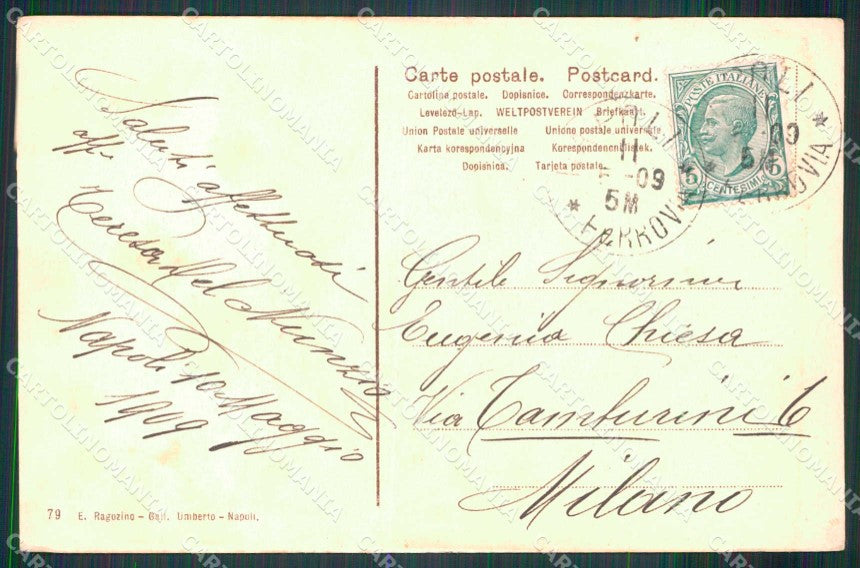 Carte postale. Postcard.
Cartolina postale. Dopisnice. Correspondenzkarte.
Levelező-Lap. WELTPOSTVEREIN Briefkaart.
Union Postale universelle Unione postale universale
Karta korespondencyjna Korespondenčnílístek.
Dopisnica. Tarjeta postale.
POSTE ITALIANE
5 5
CENTESIMI
11
-09
5M
* FERROVIA
Saluti affettuosi
aff.
Teresa Del Nunzio
Napoli 10 Maggio
1909
Gentile Signorina
Eugenia Chiesa
Via Tamburini 6
Milano
79 E. Ragozino - Gall. Umberto - Napoli.
CARTOLINOMANIA